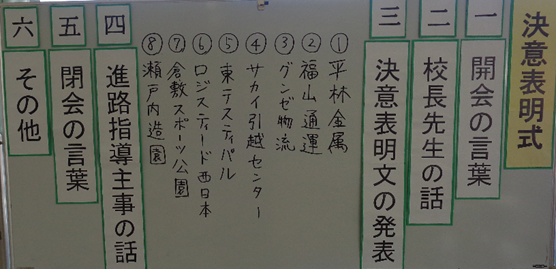 決意表明式
一 開会の言葉
二 校長先生の話
三 決意表明文の発表
①平林金属
②福山通運
③グンゼ物流
④サカイ引越センター
⑤東テスティパル
⑥ロジスティード西日本
⑦倉敷スポーツ公園
⑧瀬戸内造園
四 進路指導主事の話
五 閉会の言葉
六 その他